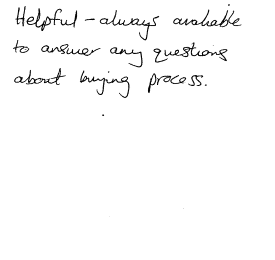 Helpful - always available
to answer any questions
about buying process.